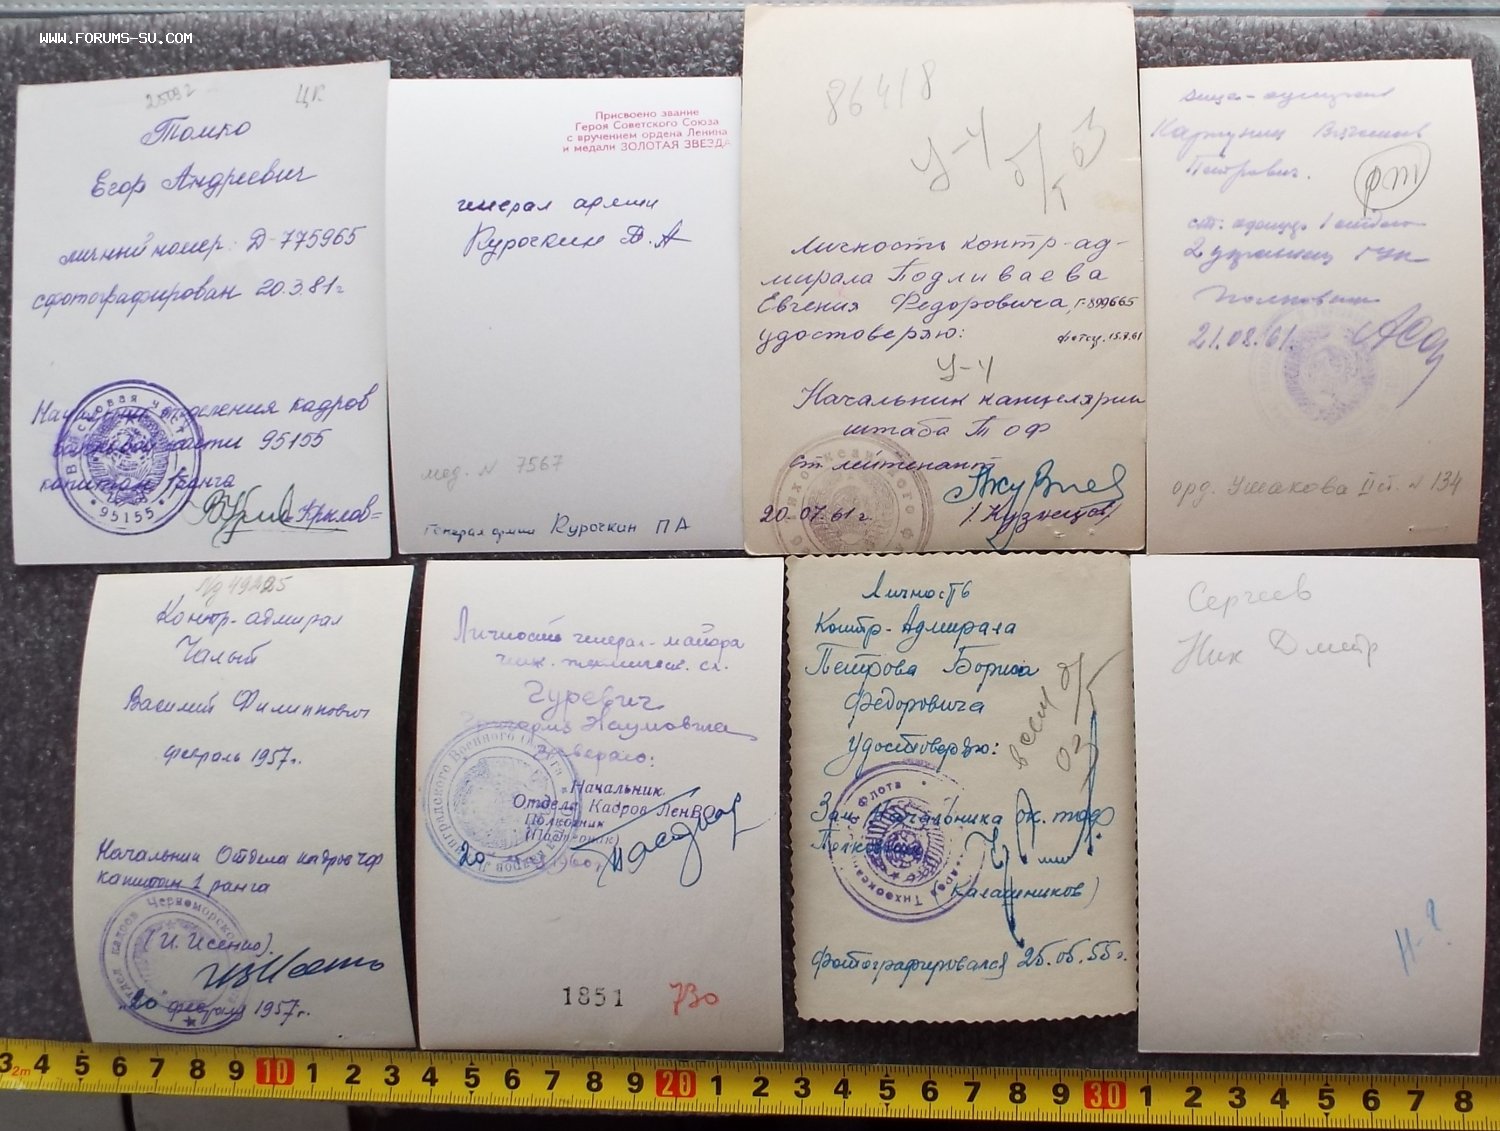 WWW.FORUMS-SU.COM
25092 ЦК
Томко
Егор Андреевич
личный номер: Д-775965
сфотографирован 20.3.81г
Начальник отделения кадров
войсковой части 95155
капитан 1 ранга
Крылов
95155
Присвоено звание
Героя Советского Союза
с вручением ордена Ленина
и медали ЗОЛОТАЯ ЗВЕЗДА
генерал армии
Курочкин П.А
мед. N 7567
Генерал армии Курочкин ПА
86418
У-4
Личность контр-ад-
мирала Подливаева
Евгения Федоровича, Г-899665
удостоверяю:
У-4
Начальник канцелярии
штаба ТОФ
ст. лейтенант
20.07.61г. /Кузнецов/
вице-адмирал
Карпунин Вячеслав
Петрович.
21.08.61.
орд. Ушакова II ст. N 134
49225
Контр-адмирал
Чалый
Василий Филиппович
февраль 1957г.
Начальник Отдела кадров ЧФ
капитан 1 ранга
(И. Исенко).
"20" февраля 1957г.
Личность генерал-майора
инж. техническ. сл.
Гуревич
Григория Наумовича
заверяю:
Начальник
Отдела Кадров ЛенВО
Полковник
1851 730
Личность
Контр-Адмирала
Петрова Бориса
Федоровича
Удостоверяю:
Зам. Начальника ок. тоф
Полковник
(Калашников)
Фотографировался 25.05.55г.
Сергеев
Ник Дмитр
Н-9
3 2m 4 5 6 7 8 9 10 1 2 3 4 5 6 7 8 9 20 1 2 3 4 5 6 7 8 9 30 1 2 3 4 5 6 7 8